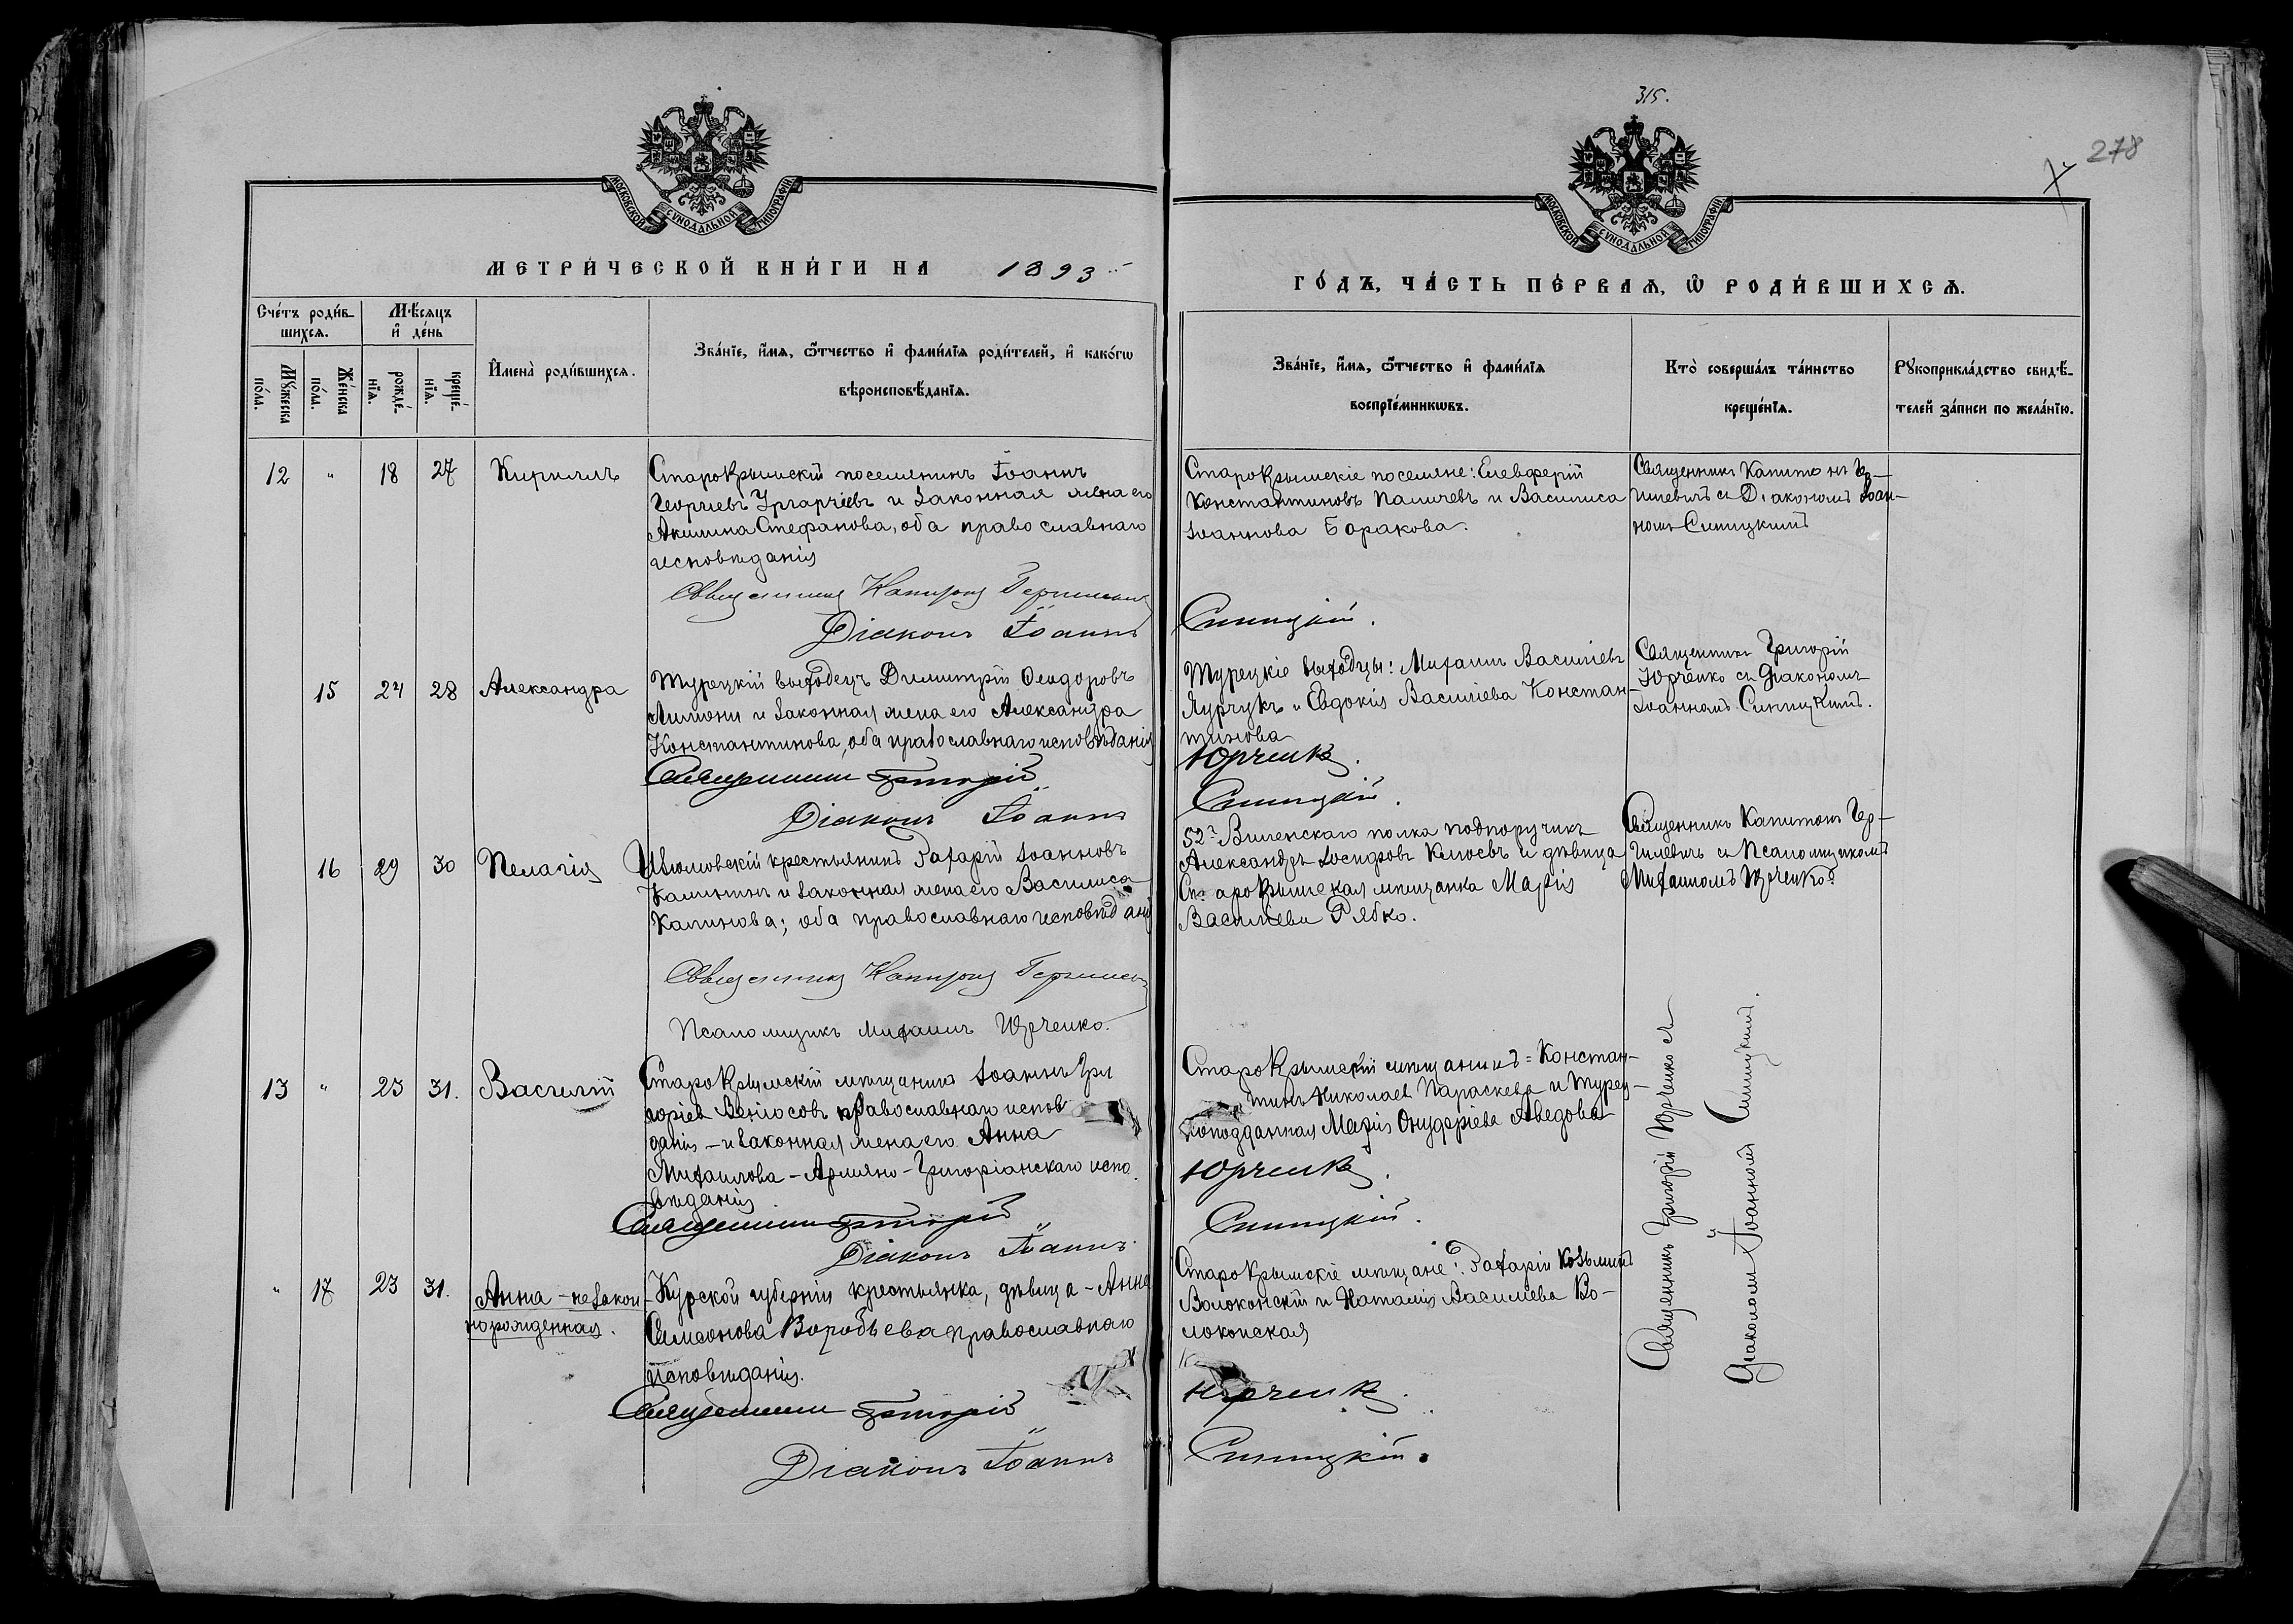 315.
278
МОСКОВСКОЙ СУНОДАЛЬНОЙ ТИПОГРАФІИ
МОСКОВСКОЙ СУНОДАЛЬНОЙ ТИПОГРАФІИ
МЕТРИ́ЧЕСКОЙ КНИ́ГИ НА 1893
ГО́ДЪ, ЧА́СТЬ ПЕ́РВАЯ, Ѡ РОДИ́ВШИХСЯ.
Сче́тъ роди́в-
шихся.
Мꙋ́жеска
по́ла.
Же́нска
по́ла.
Мѣ́сяцъ
и҆ де́нь
рожде́-
нїя.
креще́-
нїя.
И҆мена̀ роди́вшихся.
Зва́нїе, и҆́мя, ѻ҆́тчество и҆ фами́лїя роди́телей, и҆ како́гѡ
вѣроисповѣ́данїя.
Зва́нїе, и҆́мя, ѻ҆́тчество и҆ фами́лїя
воспрїе́мникѡвъ.
Кто̀ соверша́лъ та́инство
креще́нїя.
Рꙋкоприкла́дство свидѣ́-
телей за́писи по жела́нїю.
12 " 18 27 Кириллъ
Старокрымскій поселянинъ Іоаннъ
Георгіевъ и законная жена его
Акилина Стефанова, оба православнаго
исповѣданія
Священникъ Капитонъ
Діаконъ Іоаннъ
Старокрымскіе поселяне: Елевферій
Константиновъ Паличевъ и Василиса
Іоаннова Боракова.
Синицкій.
Священникъ Капитонъ Гер-
шлевичъ съ Діакономъ Іоан-
номъ Синицкимъ
15 24 28 Александра
Турецкій выходецъ Димитрій Ѳеодоровъ
и законная жена его Александра
Константинова, оба православнаго исповѣданія
Священникъ Григорій
Діаконъ Іоаннъ
Турецкіе выходцы: Михаилъ Василіевъ
и Евдокія Василіева Констан-
тинова
Юрченко.
Синицкій.
Священникъ Григорій
Юрченко съ Діакономъ
Іоанномъ Синицкимъ.
16 29 30 Пелагія
крестьянинъ Захарій Іоанновъ
Калининъ и законная жена его Василиса
оба православнаго исповѣданія
Священникъ Капитонъ
Псаломщикъ Михаилъ Юрченко.
52го Виленскаго полка подпоручикъ
Александръ Іосифовъ и дѣвица
Старокрымская мѣщанка Марія
Василіева Рябко.
Священникъ Капитонъ Гер-
шлевичъ съ Псаломщикомъ
Михаиломъ Юрченко.
13 " 23 31. Василій
Старокрымскій мѣщанинъ Іоаннъ Гри
горіев православнаго испов
данія - и законная жена его Анна
Михаилова - Армяно-Григоріанскаго испо
вѣданія
Священникъ Григорій
Діаконъ Іоаннъ
Старокрымскій мѣщанинъ = Констан-
тинъ Николаев Параскева и Турец-
коподданная Марія Онуфріева Аведова
Юрченко.
Синицкій.
" 17 23 31. Анна - незакон-
норожденная.
Курской губерніи крестьянка, дѣвица - Анна
Симеонова Воробьева православнаго
исповѣданія.
Священникъ Григорій
Діаконъ Іоаннъ
Старокрымскіе мѣщане: Захарій Козьминъ
Волоконскій и Наталія Василіева Во-
локонская
Юрченко.
Синицкій.
Священникъ Григорій Юрченко съ
Діакономъ Іоанномъ Синицкимъ.